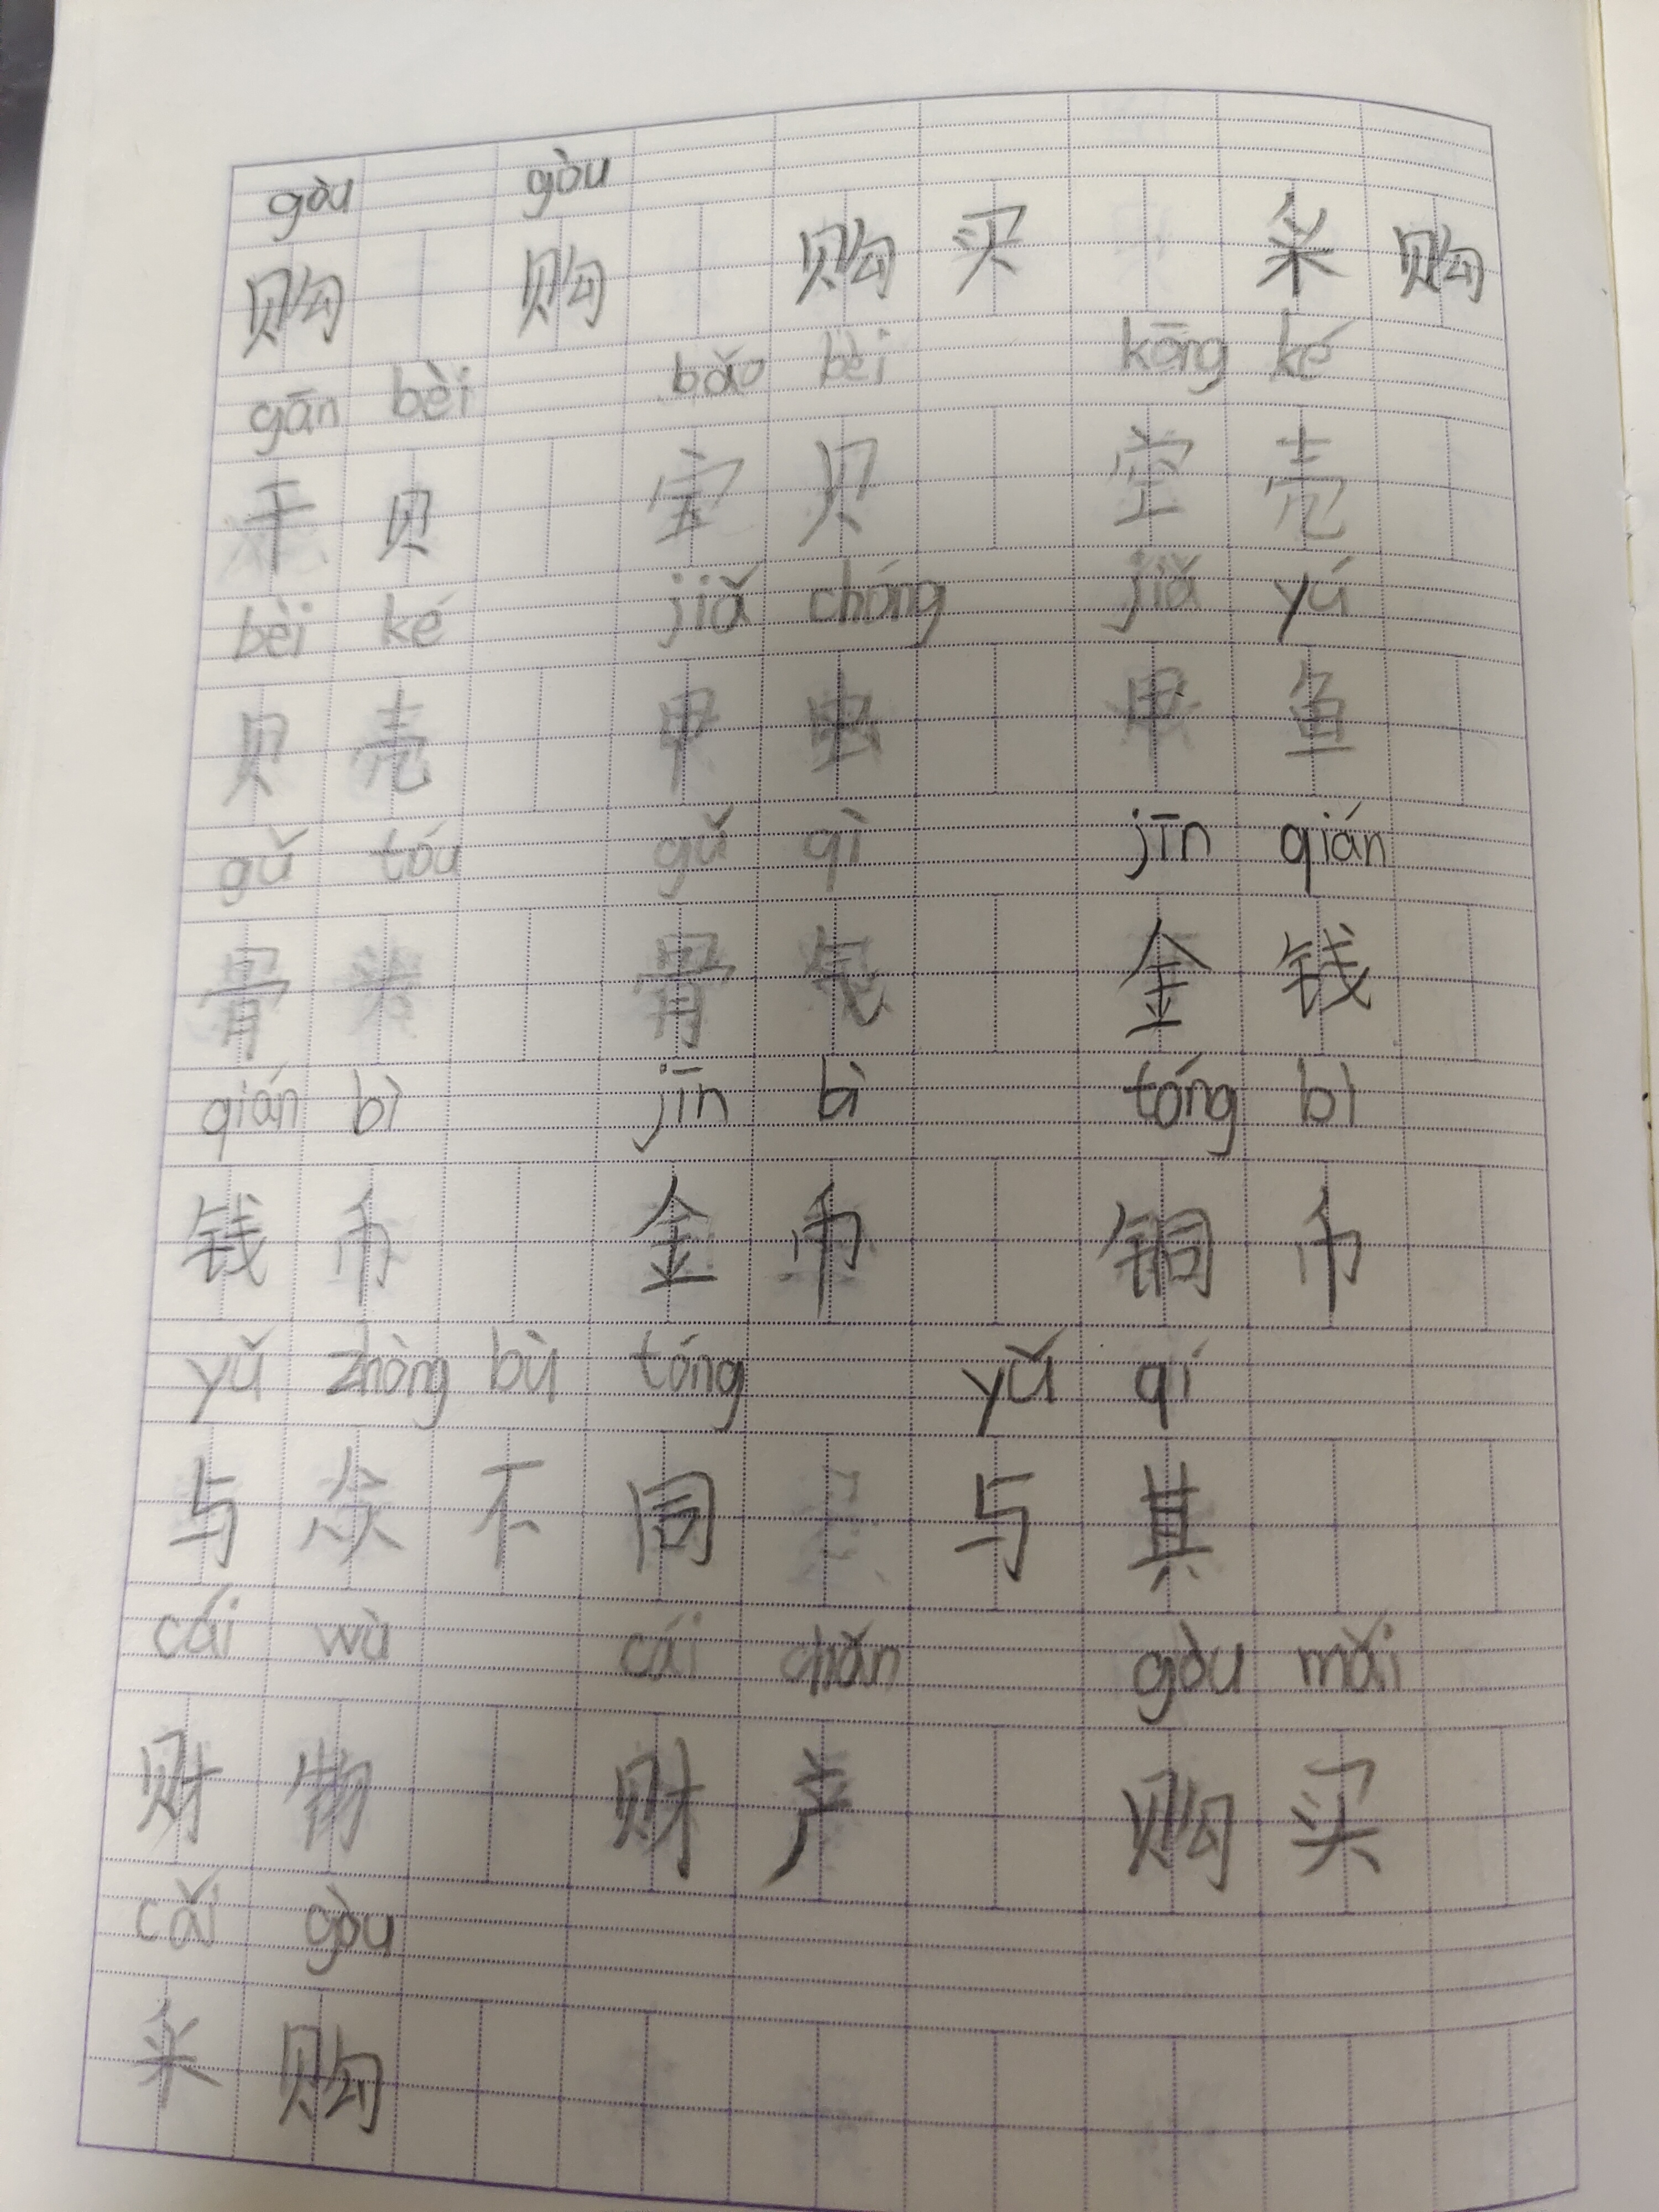 gòu gòu
购 购 购买 采购
gān bèi bǎo bèi kōng ké
干贝 宝贝 空壳
bèi ké jiǎ chóng jiǎ yú
贝壳 甲虫 甲鱼
gǔ tóu gǔ qì jīn qián
骨头 骨气 金钱
qián bì jīn bì tóng bì
钱币 金币 铜币
yǔ zhòng bù tóng yǔ qí
与众不同 与其
cái wù cái chǎn gòu mǎi
财物 财产 购买
cǎi gòu
采购